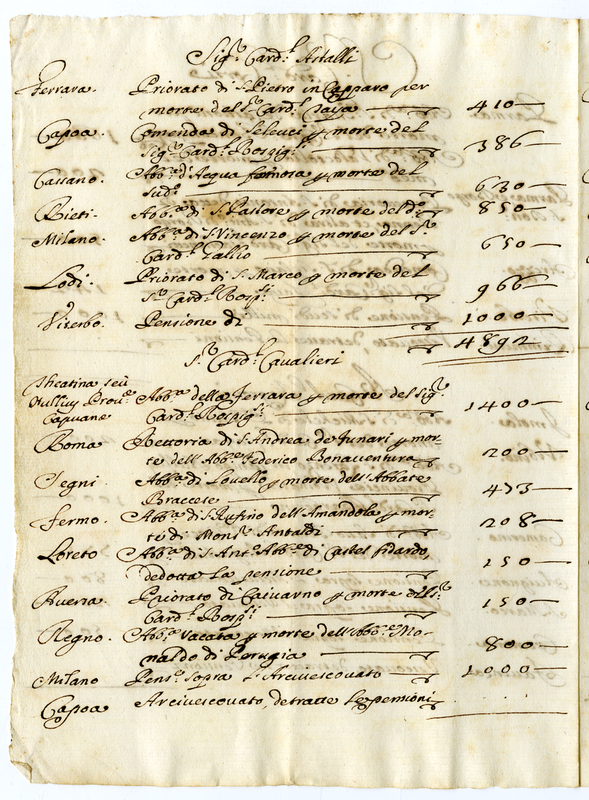 Sig.r Card.l Astalli
Ferrara. Priorato di S. Pietro in Capparo per
morte del S.r Card.l 410
Capoa. Comenda di Seleuci p morte del
Sig.r Card.l Rospig.si 386
Cassano. Abb.a d'Acqua formosa p morte del
sud.o 630
Rieti. Abb.a di S. Pastore p morte del d.o 850
Milano. Abb.a di S. Vincenzo p morte del S.r
Card.l Gallio 650
Lodi. Priorato di S. Marco p morte del
S.r Card.l Rospi.si 966
Viterbo. Pensione di 1000
4892
S.r Card.l Cavalieri
Theatina seù
Nullius Prou.e Abb.a della Ferrara p morte del Sig.r
Capuane Card.l Rospig.si 1400
Roma Rettoria di S. Andrea de funari p mor-
te dell'Abb.e Federico Bonauentura 200
Segni. Abb.a di Louello p morte dell'Abbate
Braccese 473
Fermo. Abb.a di S. Rufino dell'Amandola p mor-
te di Mons.r Antaldi 208
Loreto Abb.a di S. Ant.o Abb.e di Castel fidardo,
dedotta la pensione 150
Auersa. Priorato di Caiuarno p morte dell S.r
Card.l Rospi.si 150
Regno. Abb.a vacata p morte dell'Abb.e Mo-
naldo di Perugia 800
Milano Pens.e sopra l'Arciuescouato 1000
Capoa Arciuescouato, detratte le pensioni . . .